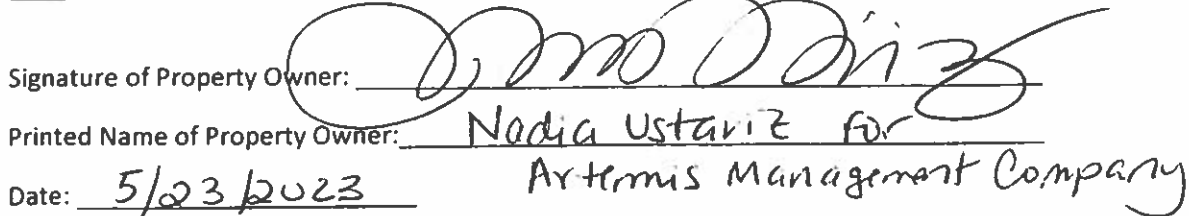 Signature of Property Owner:
Printed Name of Property Owner: Nadia Ustariz for
Artemis Management Company
Date: 5/23/2023